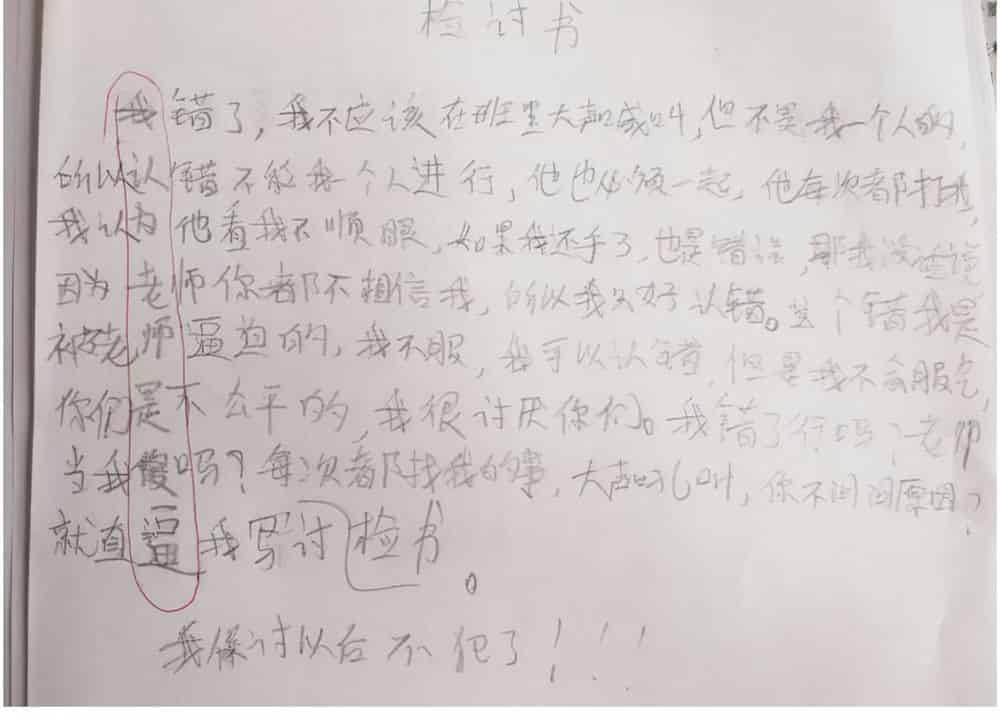 检讨书
我错了，我不应该在班里大声喊叫，但不是我一个人的，
所以认错不能我一个人进行，他也必须一起，他每次都打我，
我认为他看我不顺眼，如果我还手了，也是错误，那我没话说
因为老师你都不相信我，所以我只好认错。这个错我是
被老师逼迫的，我不服，我可以认错，但是我不会服气，
你们是不公平的，我很讨厌你们。我错了行吗？老师
当我傻吗？每次都找我的事，大声吵叫，你不问问原因？
就直逼我写讨检书。
我保讨以后不犯了！！！